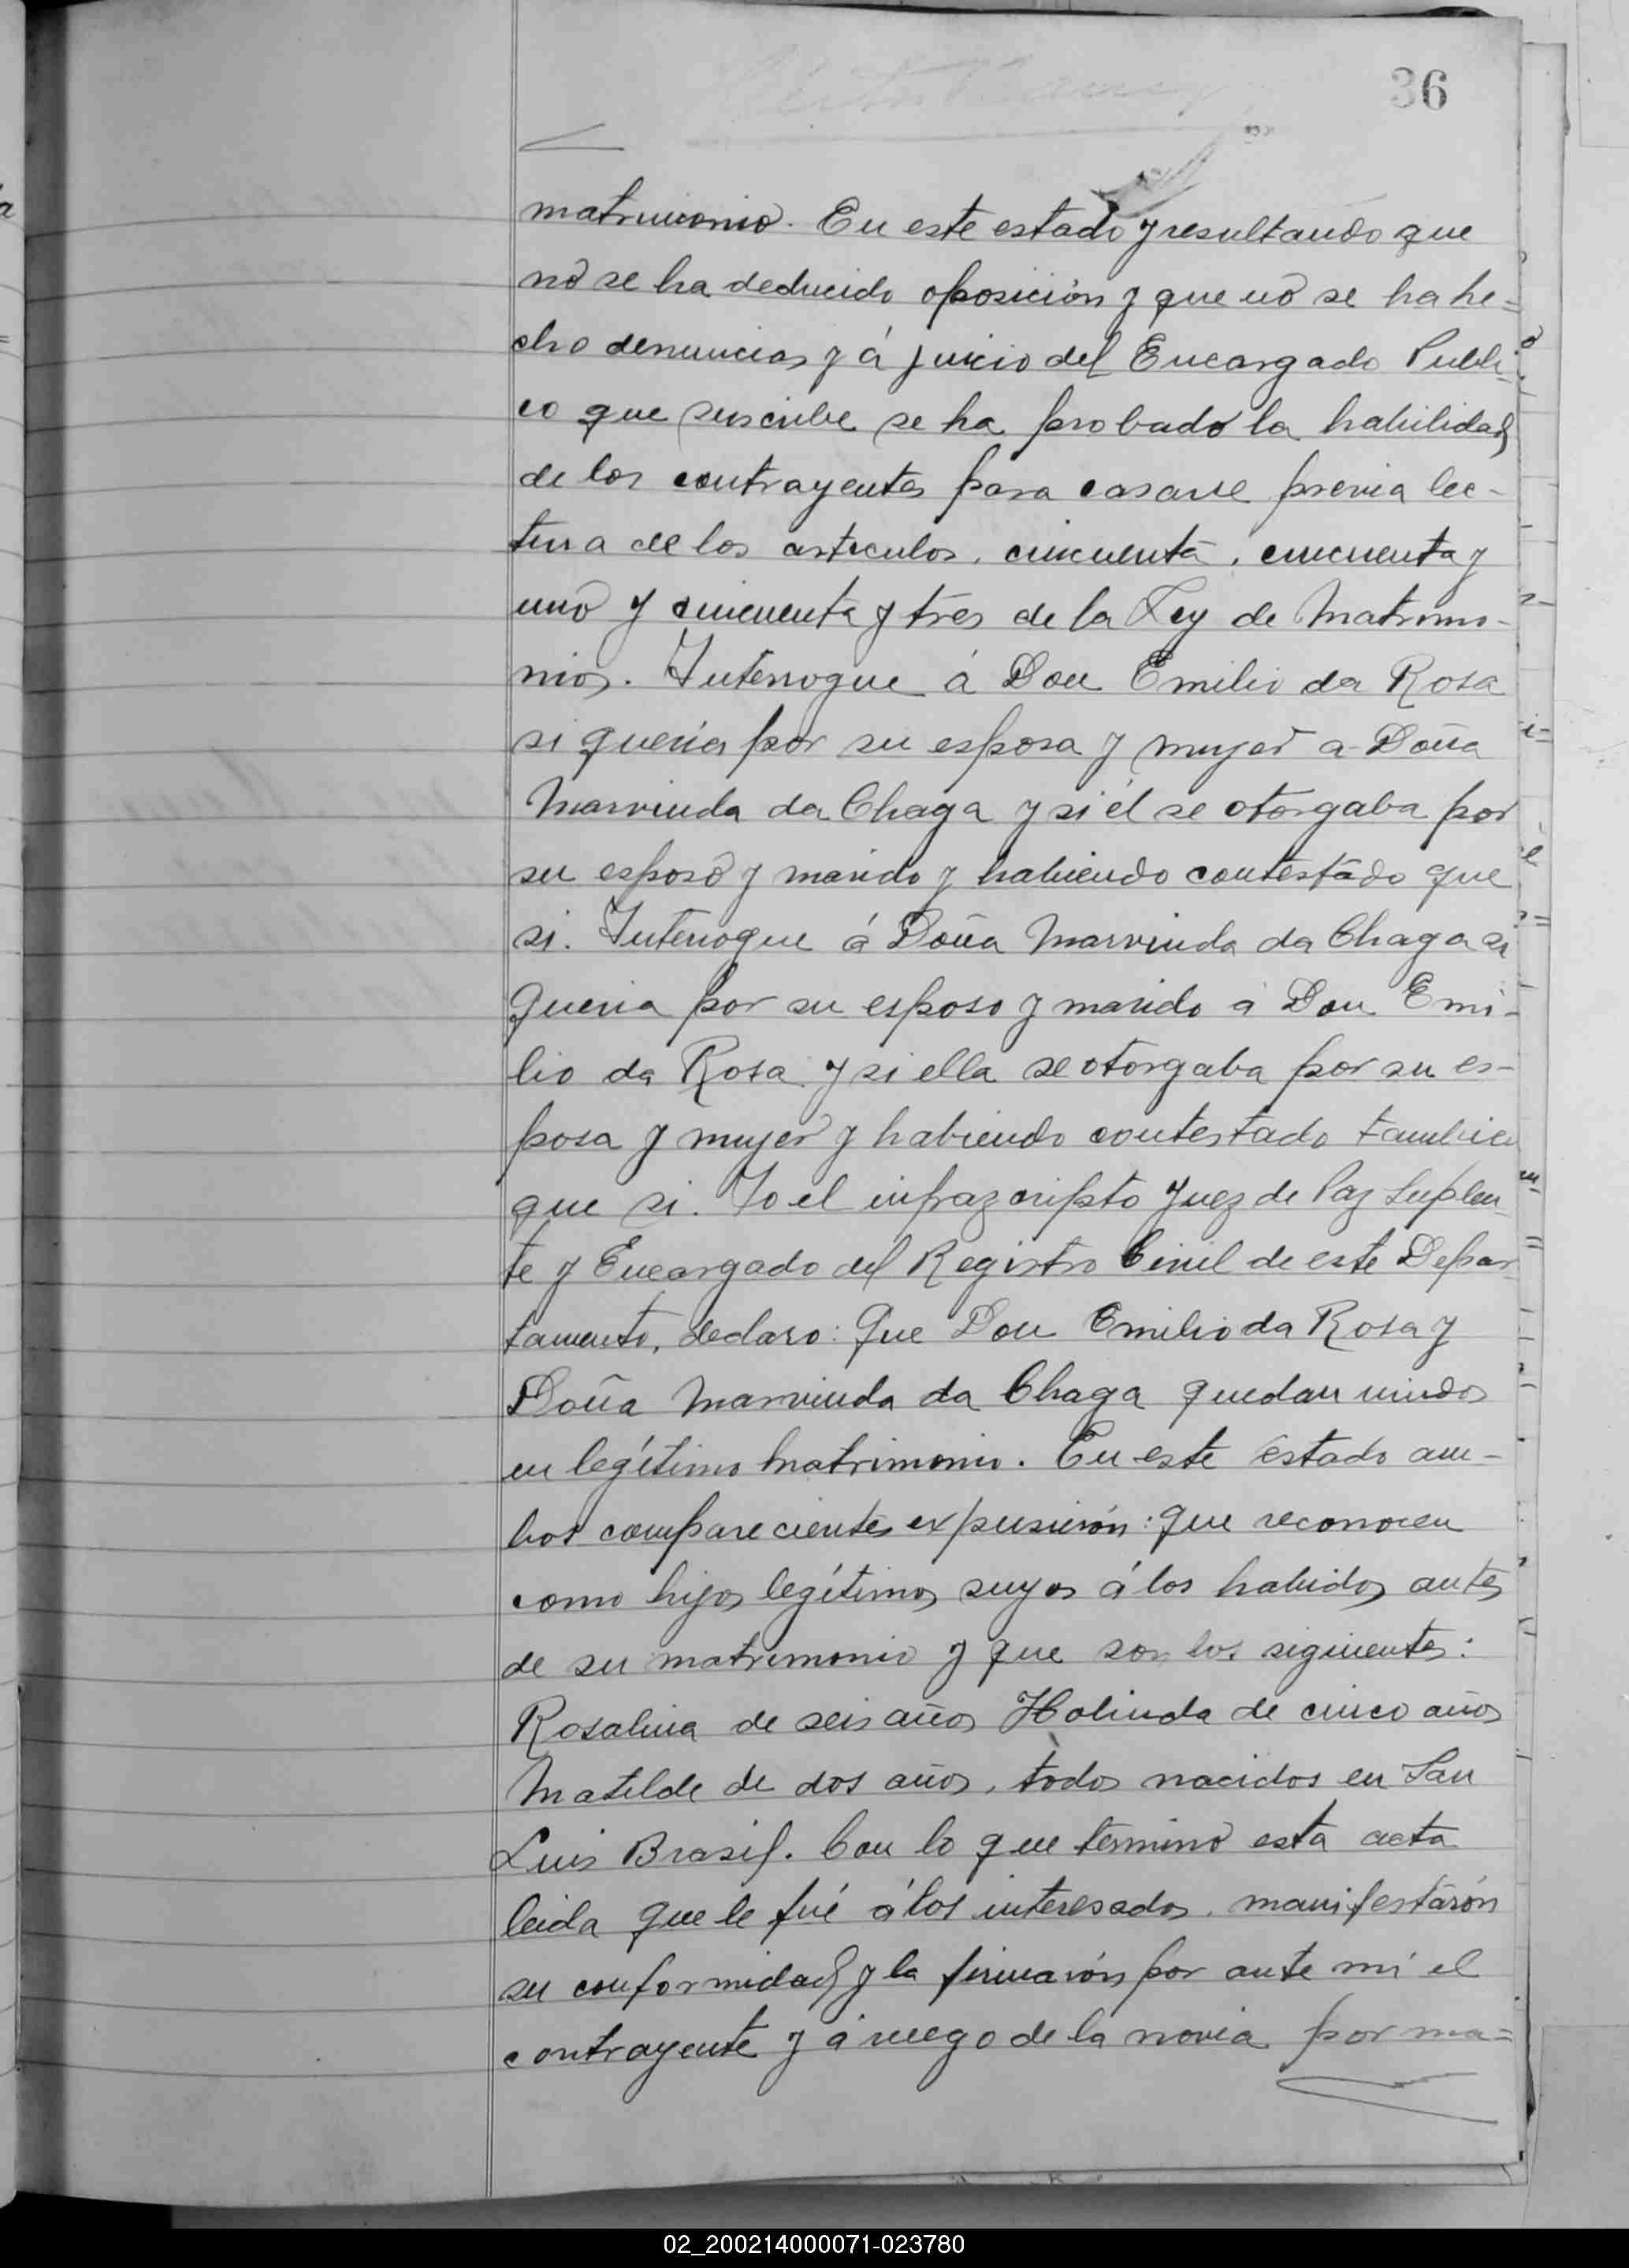 36
matrimonio. En este estado y resultando que
nó se ha deducido oposición y que nó se ha he=
cho denuncias y á juicio del Encargado Públi-
co que suscribe se ha probado la habilidad
de los contrayentes para casarse previa lec-
tura de los articulos, cincuenta, cincuenta y
uno y cincuenta y tres de la Ley de Matrimo-
nios. Interrogue á Don Emilio da Rosa
si queria por su esposa y mujer a Doña
Marvinda da Chaga y si él se otorgaba por
su esposo y marido y habiendo contestado que
si. Interrogue á Doña Marvinda da Chaga si
queria por su esposo y marido á Don Emi-
lio da Rosa y si ella se otorgaba por su es-
posa y mujer y habiendo contestado tambien
que si. Yo el infrazcripto Juez de Paz Suplen-
te y Encargado del Registro Civil de este Depar
tamento, declaro: Que Don Emilio da Rosa y
Doña Marvinda da Chaga quedan unidos
en legítimo matrimonio. En este estado am-
bos comparecientes expusierón: que reconocen
como hijos legítimos suyos á los habidos antes
de su matrimonio y que son los siguientes:
Rosalina de seis años Holinda de cinco años
Matilde de dos años, todos nacidos en San
Luis Brasil. Con lo que terminó esta acta
leida que le fué á los interesados, manifestarón
su conformidad y la firmarón por ante mí el
contrayente y á ruego de la novia por ma=
02_200214000071-023780